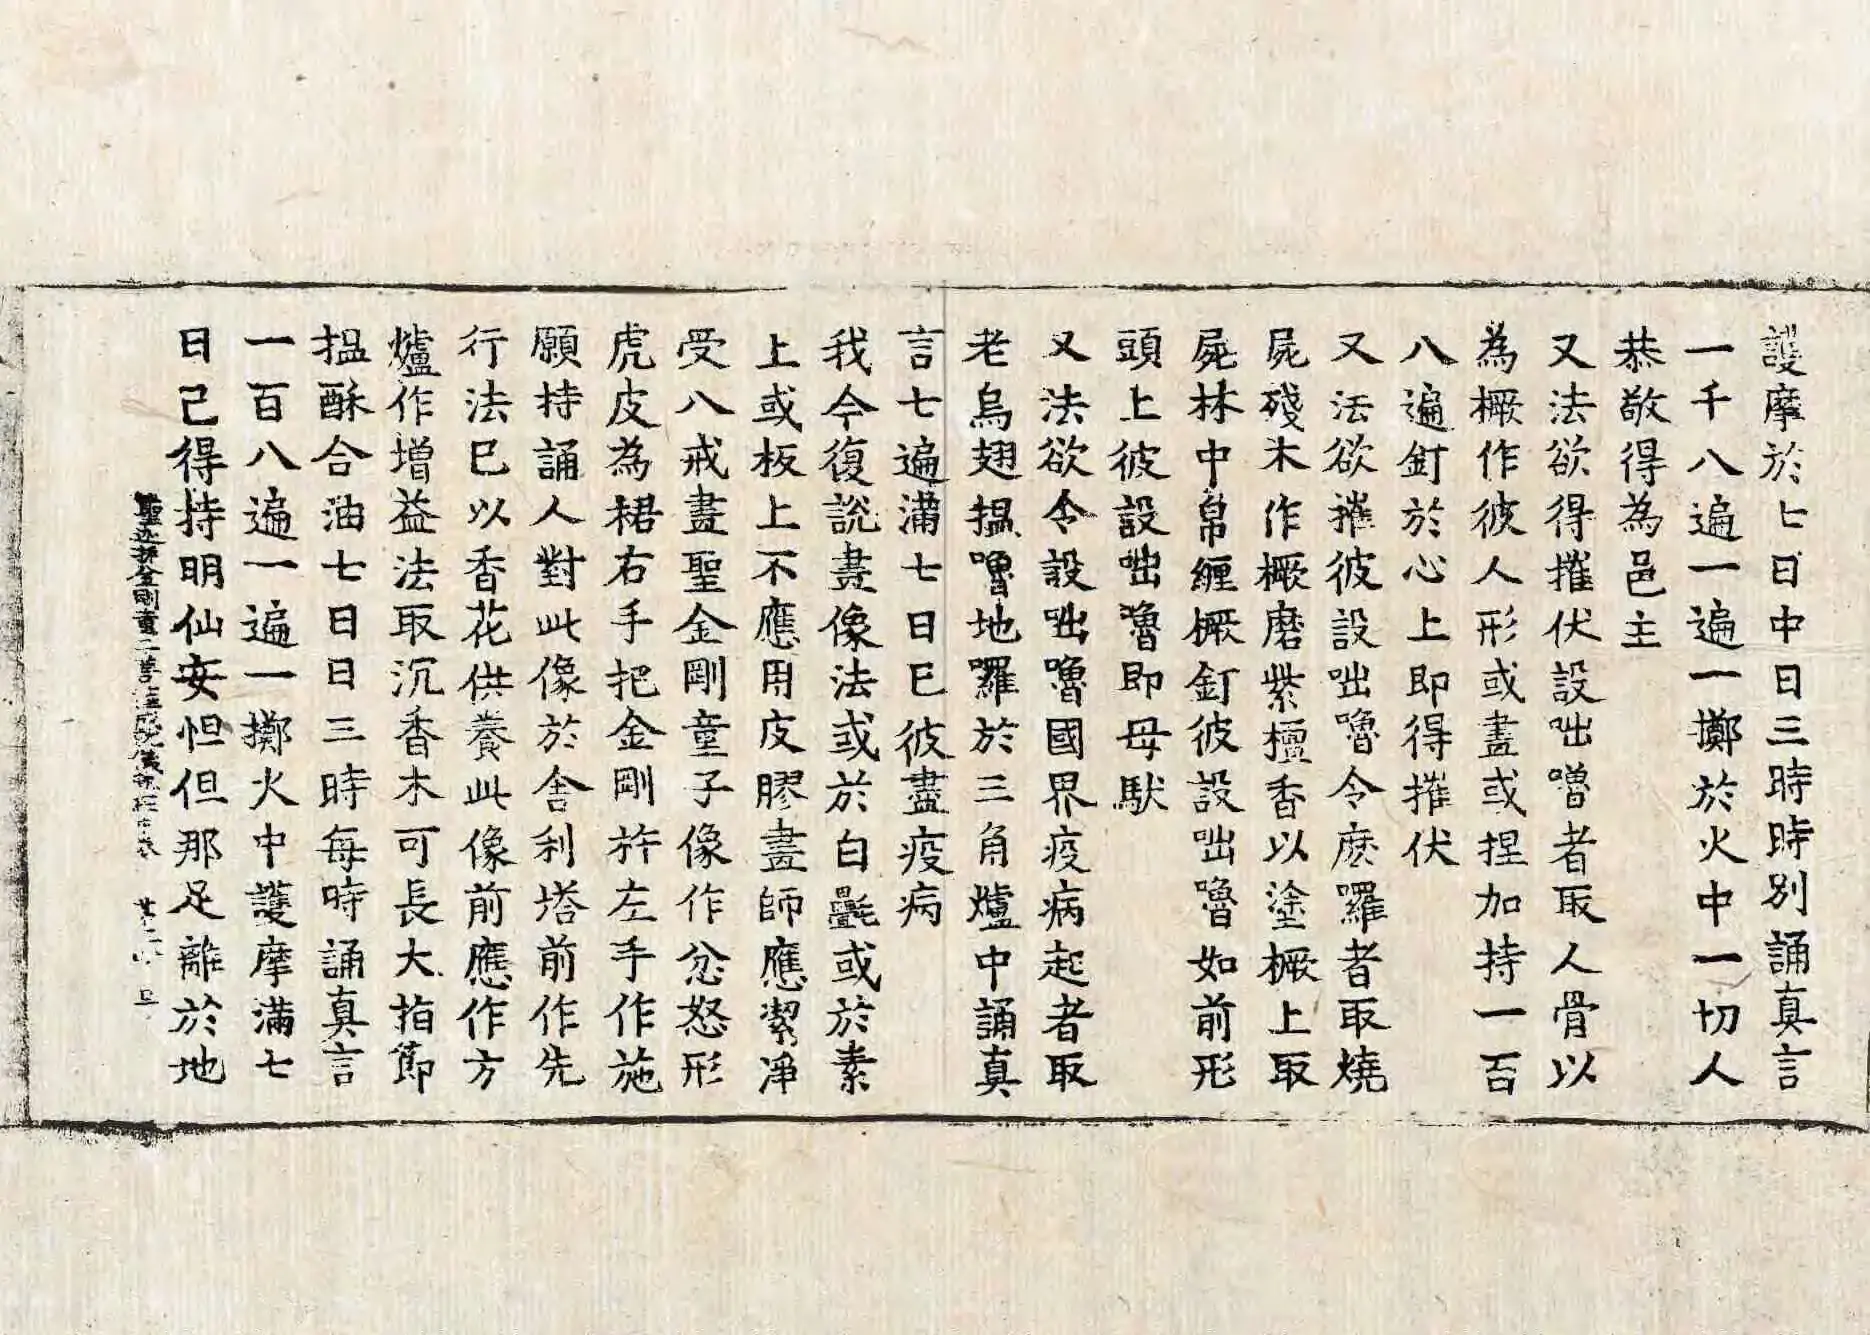 護摩於七日中日三時時別誦真言
一千八遍一遍一擲於火中一切人
恭敬得為邑主
又法欲得摧伏設咄嚕者取人骨以
為橛作彼人形或畫或捏加持一百
八遍釘於心上即得摧伏
又法欲摧彼設咄嚕令麼羅者取燒
屍殘木作橛磨紫檀香以塗橛上取
屍林中帛纏橛釘彼設咄嚕如前形
頭上彼設咄嚕即母馱
又法欲令設咄嚕國界疫病起者取
老烏翅搵嚕地囉於三角爐中誦真
言七遍滿七日已彼盡疫病
我今復説畫像法或於白㲲或於素
上或板上不應用皮膠畫師應潔淨
受八戒畫聖金剛童子像作忿怒形
虎皮為裙右手把金剛杵左手作施
願持誦人對此像於舍利塔前作先
行法已以香花供養此像前應作方
爐作增益法取沉香木可長大指節
搵酥合油七日日三時每時誦真言
一百八遍一遍一擲火中護摩滿七
日已得持明仙安怛但那足離於地